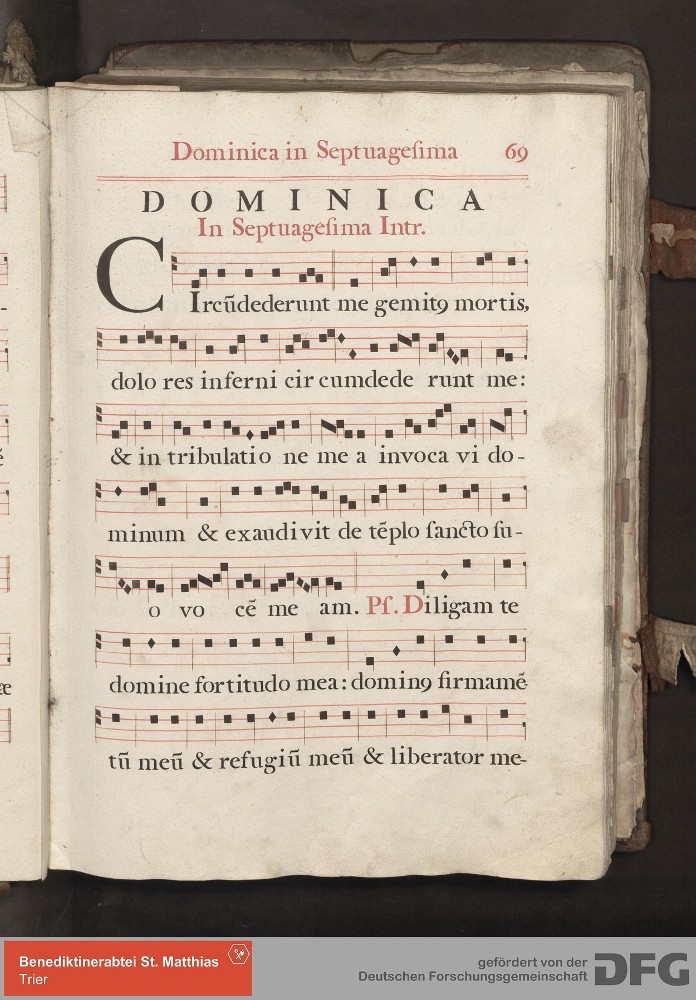 Dominica in Septuageſima 69
DOMINICA
In Septuageſima Intr.
CIrcūdederunt me gemitꝯ mortis,
dolo res inferni cir cumdede runt me:
& in tribulatio ne me a invoca vi do-
minum & exaudivit de tēplo ſancto ſu-
o vo cē me am. Pſ. Diligam te
domine fortitudo mea: dominꝯ firmamē-
tū meū & refugiū meū & liberator me-
Benediktinerabtei St. Matthias
Trier
gefördert von der
Deutschen Forschungsgemeinschaft
DFG